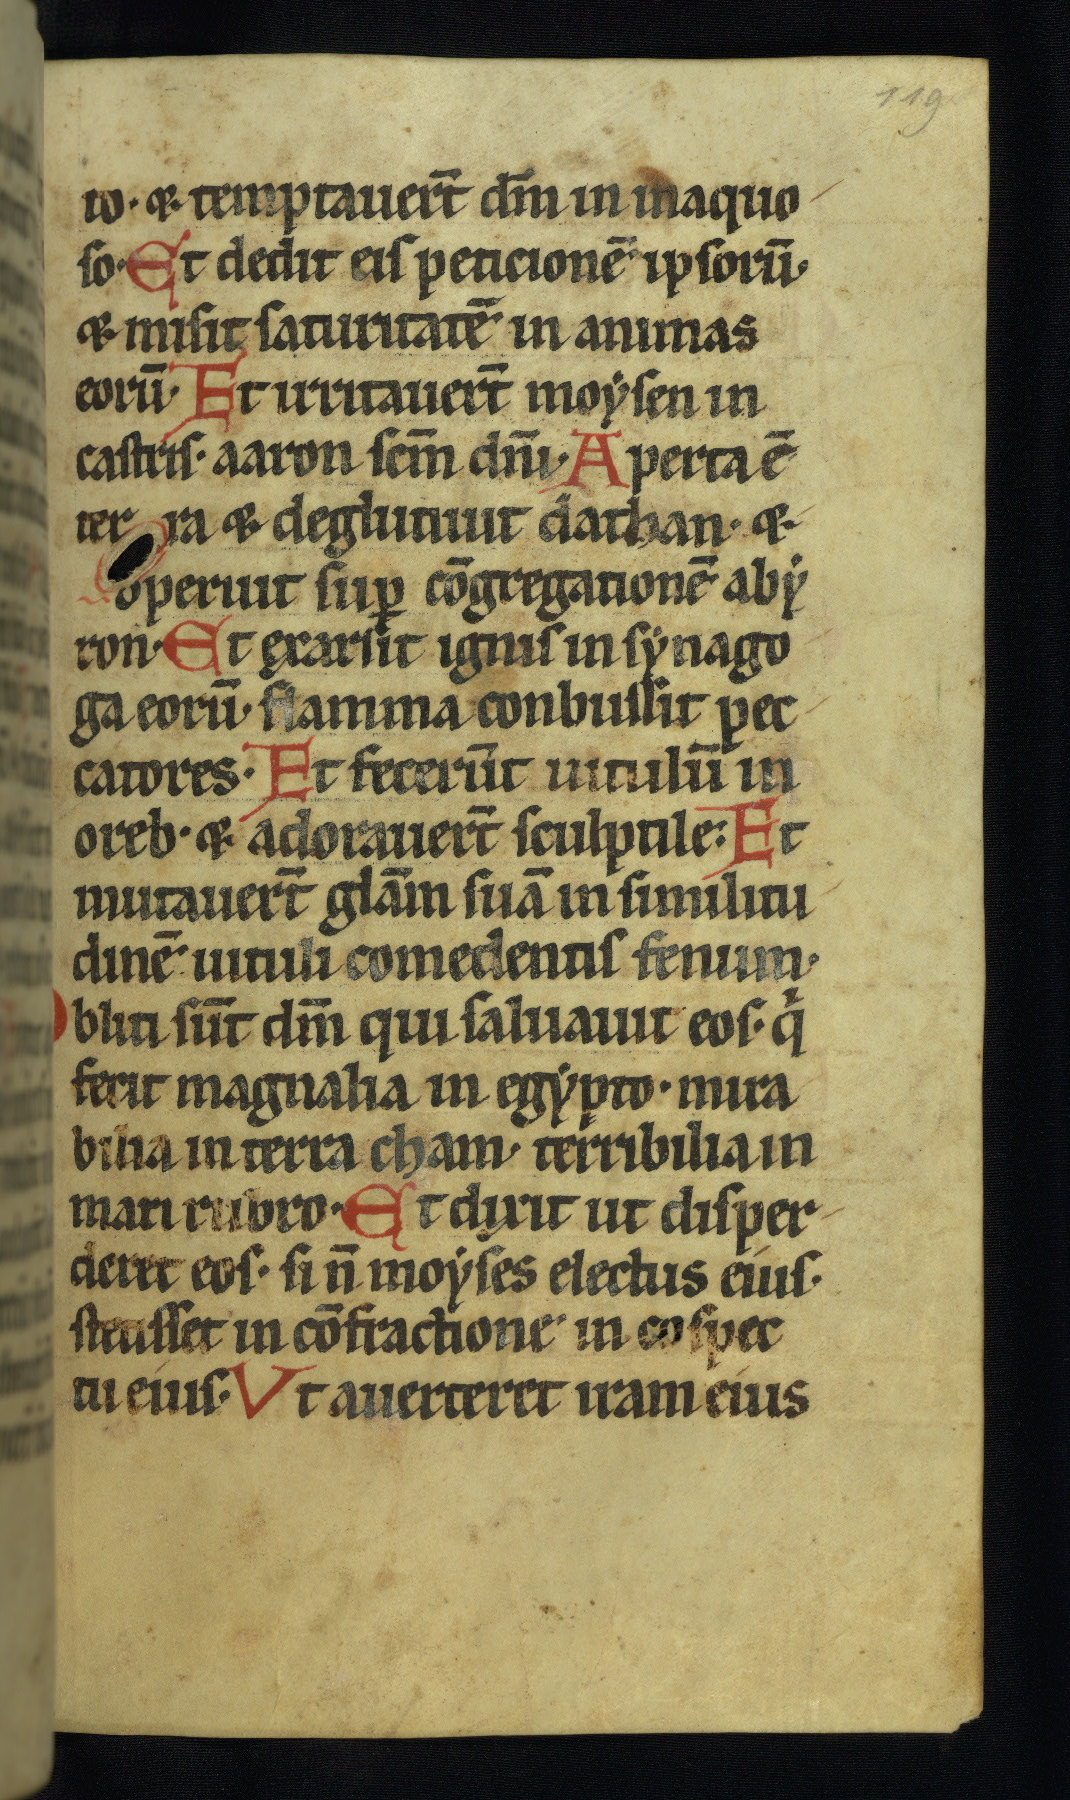 119
to· ⁊ temptauer̄t dm̄ in inaquo
so· Et dedit eis peticionē ipsorū·
⁊ misit saturitatē in animas
eorū· Et irritauer̄t moÿsen in
castris· aaron scm̄ dn̄i· Aperta ē
ter ra ⁊ deglutiuit dathan· ⁊
operuit sup̱ cōgregationē abÿ
ron· Et exarsit ignis in sÿnago
ga eorū· flamma conbussit pec
catores· Et fecer̄ut uitulū in
oreb· ⁊ adorauer̄t sculptile: Et
mutauer̄t glām suā in similitu
dinē uituli comedentis fenum·
Obliti sūt dm̄ qui saluauit eos· q̇
fecit magnalia in egÿpto· mira
bilia in terra cham· terribilia in
mari rubro· Et dixit ut disper
deret eos· si n̄ moÿses electus eius·
stetisset in cōfractione in cospec
tu eius· Vt auerteret iram eius